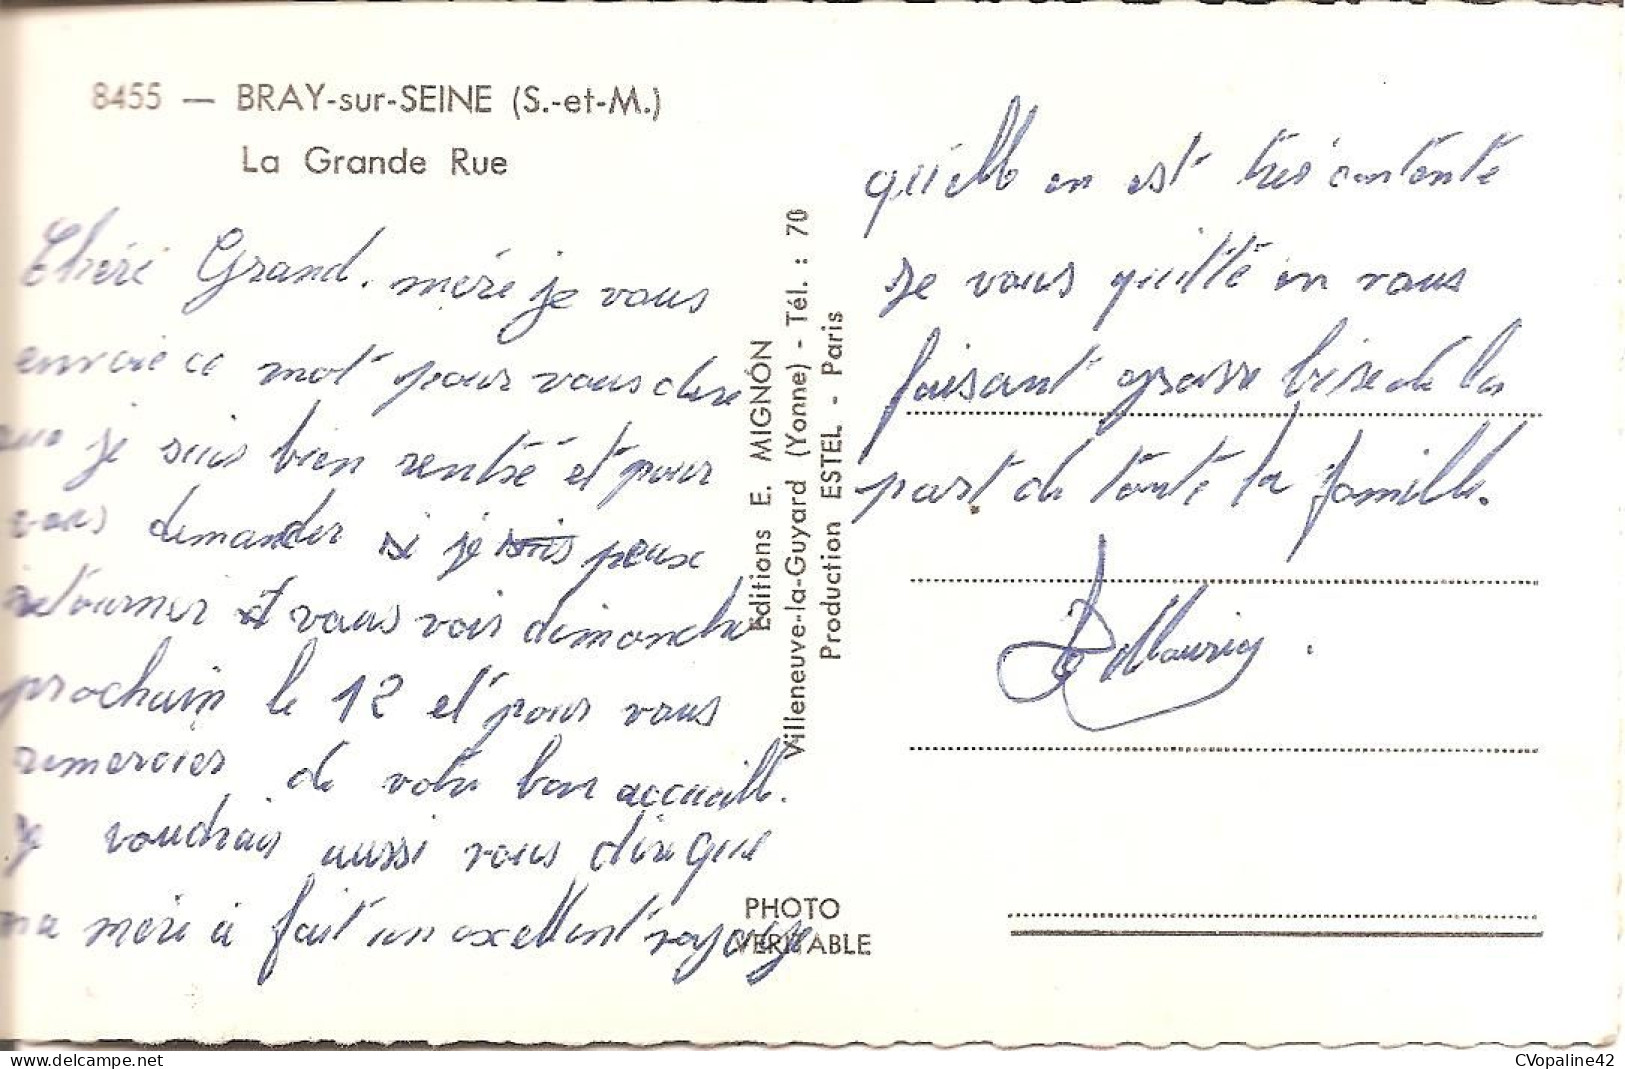 8455 — BRAY-sur-SEINE (S.-et-M.)
La Grande Rue
Chéré Grand. mère je vous
envoie ce mot pour vous dire
que je suis bien rentré et pour
vous demander si je peux
retourner et vous voir dimanche
prochain le 12 et pour vous
remercier de votre bon accueille.
Je voudrais aussi vous dire que
ma mère à fait un excellent voyage
Editions E. MIGNON
Villeneuve-la-Guyard (Yonne) - Tél. : 70
Production ESTEL - Paris
PHOTO
VERITABLE
qu'elle en est très contente
Je vous quitte en vous
faisant grosse bise de la
part de toute la famille.
CVopaline42